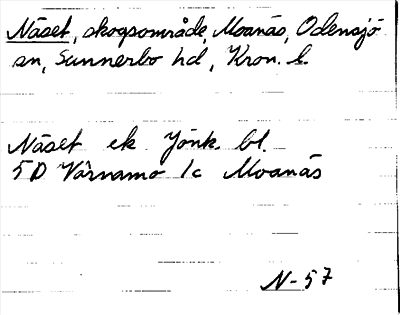 Näset, skogsområde, Moanäs, Odensjö
sn, Sunnerbo hd, Kron. l.
Näset ek Jönk. bl.
5D Värnamo 1c Moanäs
N-57